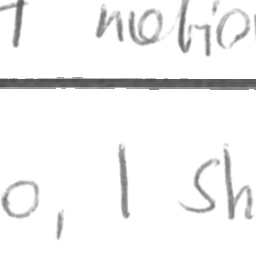 t motion
o, I sh